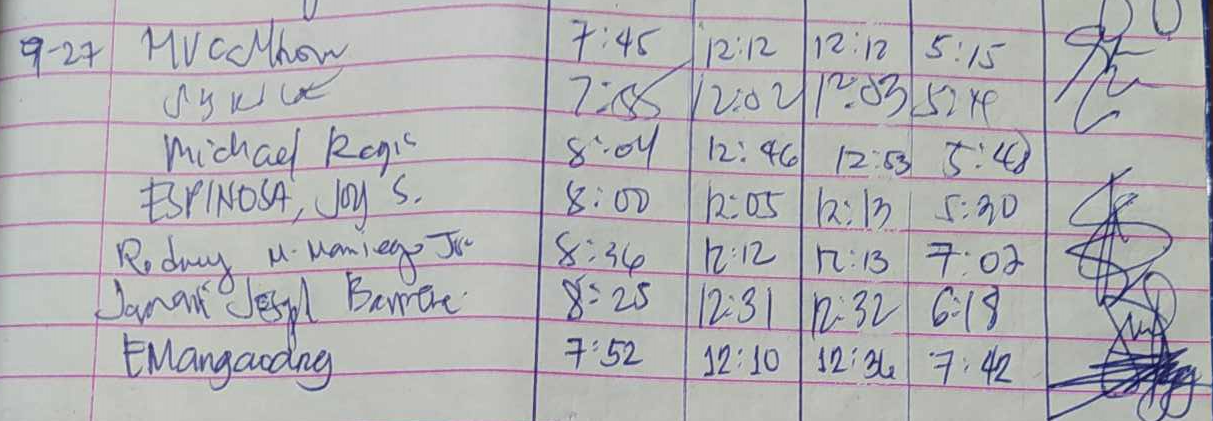 9-27 7:45 12:12 12:12 5:15
7:55 12:02 12:03
Michael Regis 8:04 12:46 12:53 5:48
ESPINOSA, JOY S. 8:00 12:05 12:13 5:30
Rodney M. Maniego Jr. 8:36 12:12 12:13 7:02
8:25 12:31 12:32 6:18
EMangaoang 7:52 12:10 12:36 7:42